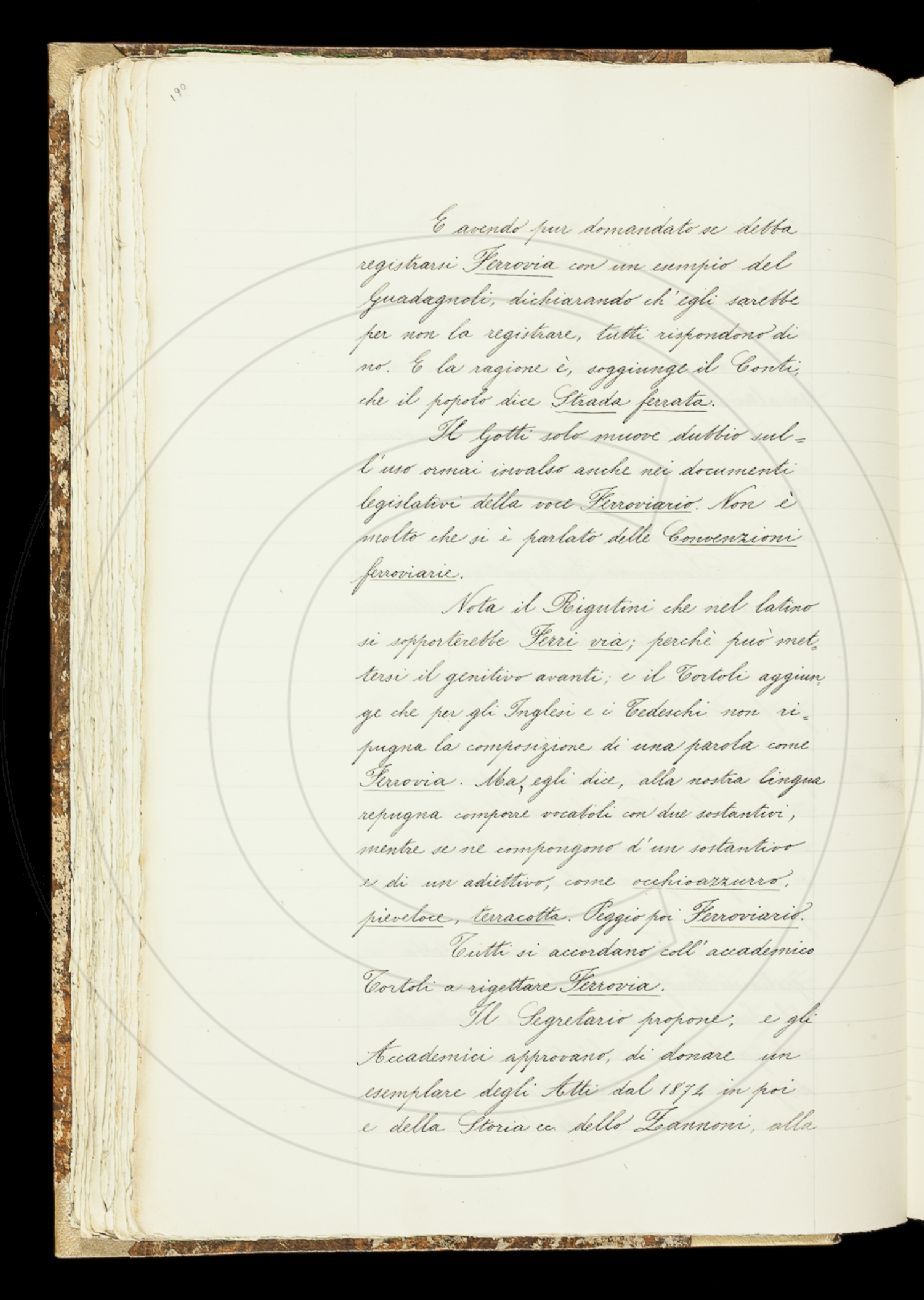 190
E avendo pur domandato se debba
registrarsi Ferrovia con un esempio del
Guadagnoli, dichiarando ch'egli sarebbe
per non la registrare, tutti rispondono di
no. E la ragione è, soggiunge il Conti,
che il popolo dice Strada ferrata.
Il Gotti solo muove dubbio sul=
l'uso ormai invalso anche nei documenti
legislativi della voce Ferroviario. Non è
molto che si è parlato delle Convenzioni
ferroviarie.
Nota il Rigutini che nel latino
si sopporterebbe Ferri via; perchè può met=
tersi il genitivo avanti; e il Tortoli aggiun=
ge che per gli Inglesi e i Tedeschi non ri=
pugna la composizione di una parola come
Ferrovia. Ma, egli dice, alla nostra lingua
repugna comporre vocaboli con due sostantivi,
mentre se ne compongono d'un sostantivo
e di un adiettivo, come occhioazzurro,
pieveloce, terracotta. Peggio poi Ferroviario.
Tutti si accordano coll'accademico
Tortoli a rigettare Ferrovia.
Il Segretario propone, e gli
Accademici approvano, di donare un
esemplare degli Atti dal 1874 in poi
e della Storia ec. dello Zannoni, alla